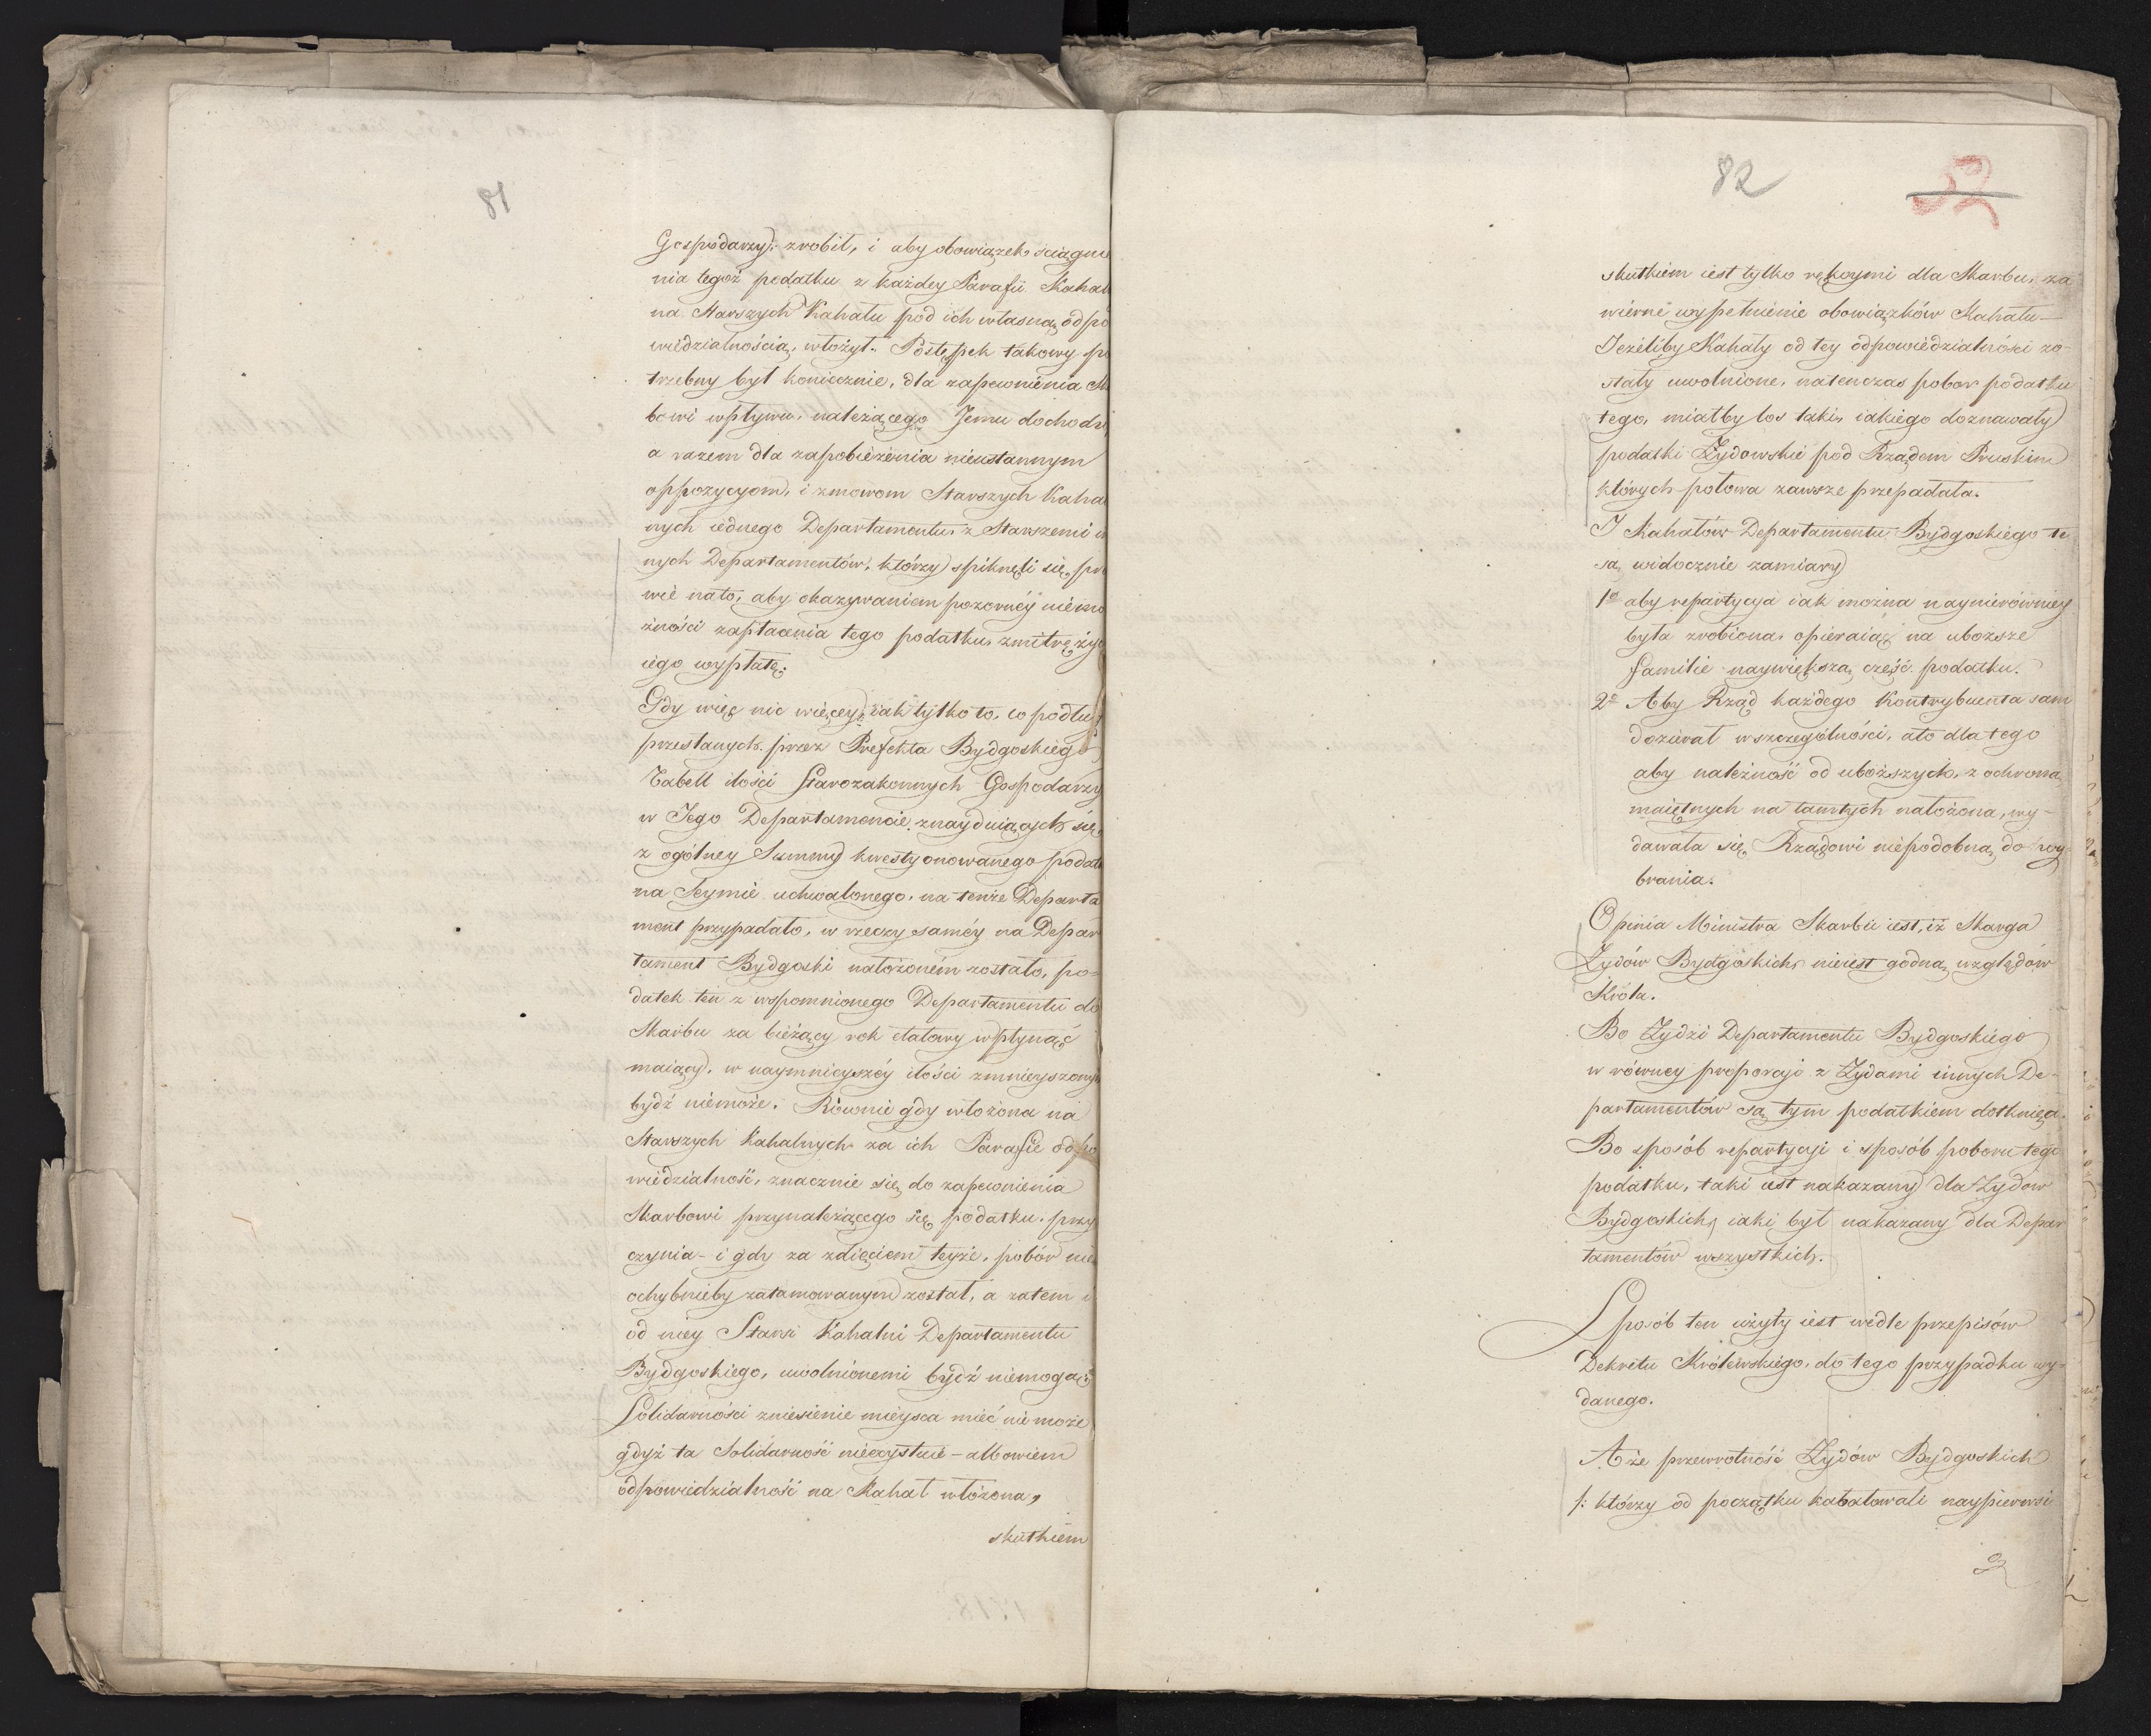 81
Gospodarzy): zrobił, i aby obowiązek sciągnie
nia tegoż podatku z każdey Parafii Kahal
na Starszych Kahału pod ich własną odpo
wiedzialnością, włożył. Postępek takowy po
trzebny był koniecznie, dla zapewnienia Skar
bowi wpływu, należącego Jemu dochodu,
a razem dla zapobieżenia nieustannym
oppozycyom, i zmowom Starszych Kahal
nych iednego Departamentu z Starszemi in
nych Departamentów, którzy spiknęli się pra
wie nato, aby okazywaniem pozornéy niemo
żności zapłacenia tego podatku, zmitrężyć
iego wypłatę.
Gdy więc nic więcey, iak tylko to, co podług
przesłanych przez Prefekta Bydgoskiego
Tabell ilości Starozakonnych Gospodarzy
w Jego Departamencie znayduiących się,
z ogólney Summy kwestyonowanego podatk
na Seymie uchwalonego, na tenże Departa
ment przypadało, w rzeczy saméy na Depar
tament Bydgoski nałożoném zostało, po-
datek ten z wspomnionego Departamentu do
Skarbu za bieżący rok etatowy wpłynąć
maiący, w naymnieyszéy ilości zmnieyszonym
bydź niemoże. Równie gdy włożona na
Starszych Kahalnych za ich Parafie odpo
wiedzialność, znacznie się do zapewnienia
Skarbowi przynależącego się podatku przy
czynia - i gdy za zdięciem teyże, pobór nie
ochybnieby zatamowanym został, a zatem i
od niey Starsi Kahalni Departamentu
Bydgoskiego, uwolnionemi bydź niemogą.
Solidarności zniesienie mieysca mieć nie może
gdyż ta Solidarność nieexystuie - albowiem
odpowiedzialność na Kahał włożona,
skutkiem
82
52
skutkiem iest tylko rękoymi dla Skarbu, za
wierne wypełnienie obowiązków Kahału -
Jeżeliby Kahały od tey odpowiedzialności zo-
stały uwolnione, natenczas pobor podatku
tego, miałby los taki, iakiego doznawały
podatki Żydowskie pod Rządem Pruskim
których połowa zawsze przepadała.
I Kahałów Departamentu Bydgoskiego te
są widocznie zamiary
1o aby repartycya iak można naynierówniey
była zrobiona, opieraiąc na uboższe
familie naywiększą część podatku.
2o Aby Rząd każdego Kontrybuenta sam
dozierał w szczególności, ato dla tego
aby należność od uboższych, z ochroną
maiętnych na tamtych nałożona, wy-
dawała się Rządowi niepodobną do wy
brania.
Opinia Ministra Skarbu iest, iż Skarga
Żydów Bydgoskich nieiest godną względów
Króla.
Bo Żydzi Departamentu Bydgoskiego
w równey proporcji z Żydami innych De-
partamentów są tym podatkiem dotknięci.
Bo sposób repartycji i sposób poboru tego
podatku, taki iest nakazany dla Żydow
Bydgoskich, iaki był nakazany dla Depar
tamentów wszystkich.
Sposób ten użyty iest wedle przepisów
Dekretu Królewskiego, do tego przypadku wy-
danego.
A że przewrotność Żydów Bydgoskich
/: którzy od początku kabałowali naypierwsi